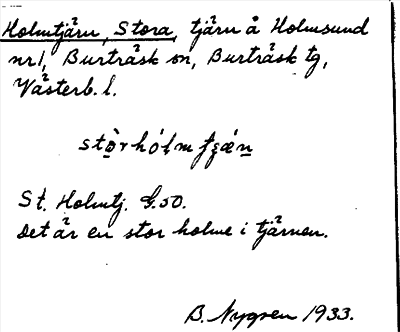 Holmtjärn, Stora, tjärn å Holmsund
nr 1, Burträsk sn, Burträsk tg,
Västerb. l.
St. Holmtj. G.50.
Det är en stor holme i tjärnen.
B. Nygren 1933.